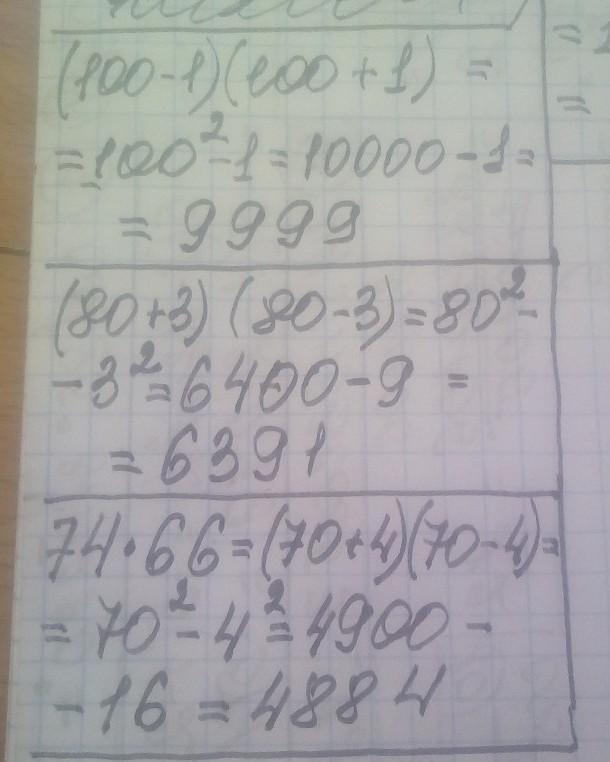 (100-1)(100+1) =
=100²-1=10000-1=
= 9999
(80+3) (80-3)=80²-
-3²=6400-9 =
= 6391
74·66=(70+4)(70-4)=
= 70²-4²=4900 -
-16 = 4884
= 
=